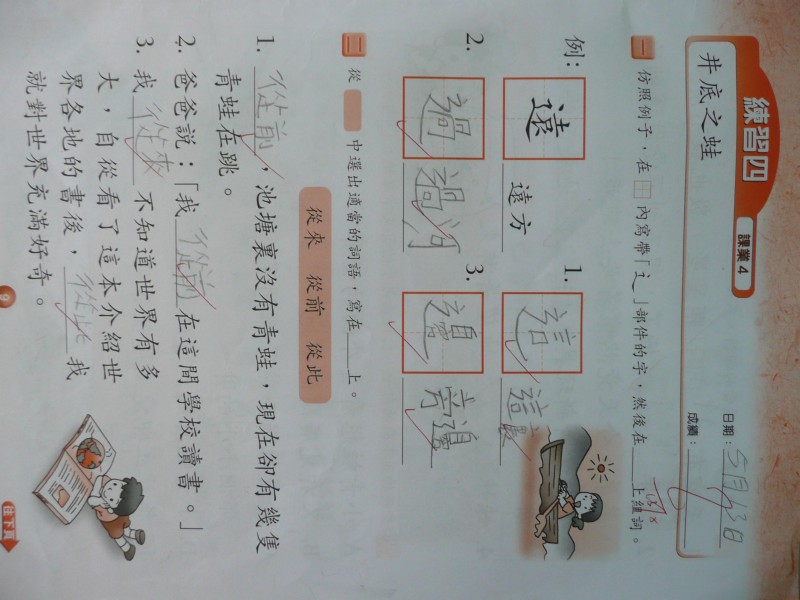 練習四
課業4
井底之蛙
日期：5月13日
成績：
一 仿照例子，在 內寫帶「辶」部件的字，然後在___上組詞。
例： 遠 遠方
1. 這 這般
2. 過 過河
3. 邊 旁邊
二 從 中選出適當的詞語，寫在___上。
從來 從前 從此
1. 從前，池塘裏沒有青蛙，現在卻有幾隻
青蛙在跳。
2. 爸爸說：「我從前在這間學校讀書。」
3. 我從來不知道世界有多
大，自從看了這本介紹世
界各地的書後，從此我
就對世界充滿好奇。
9
往下頁